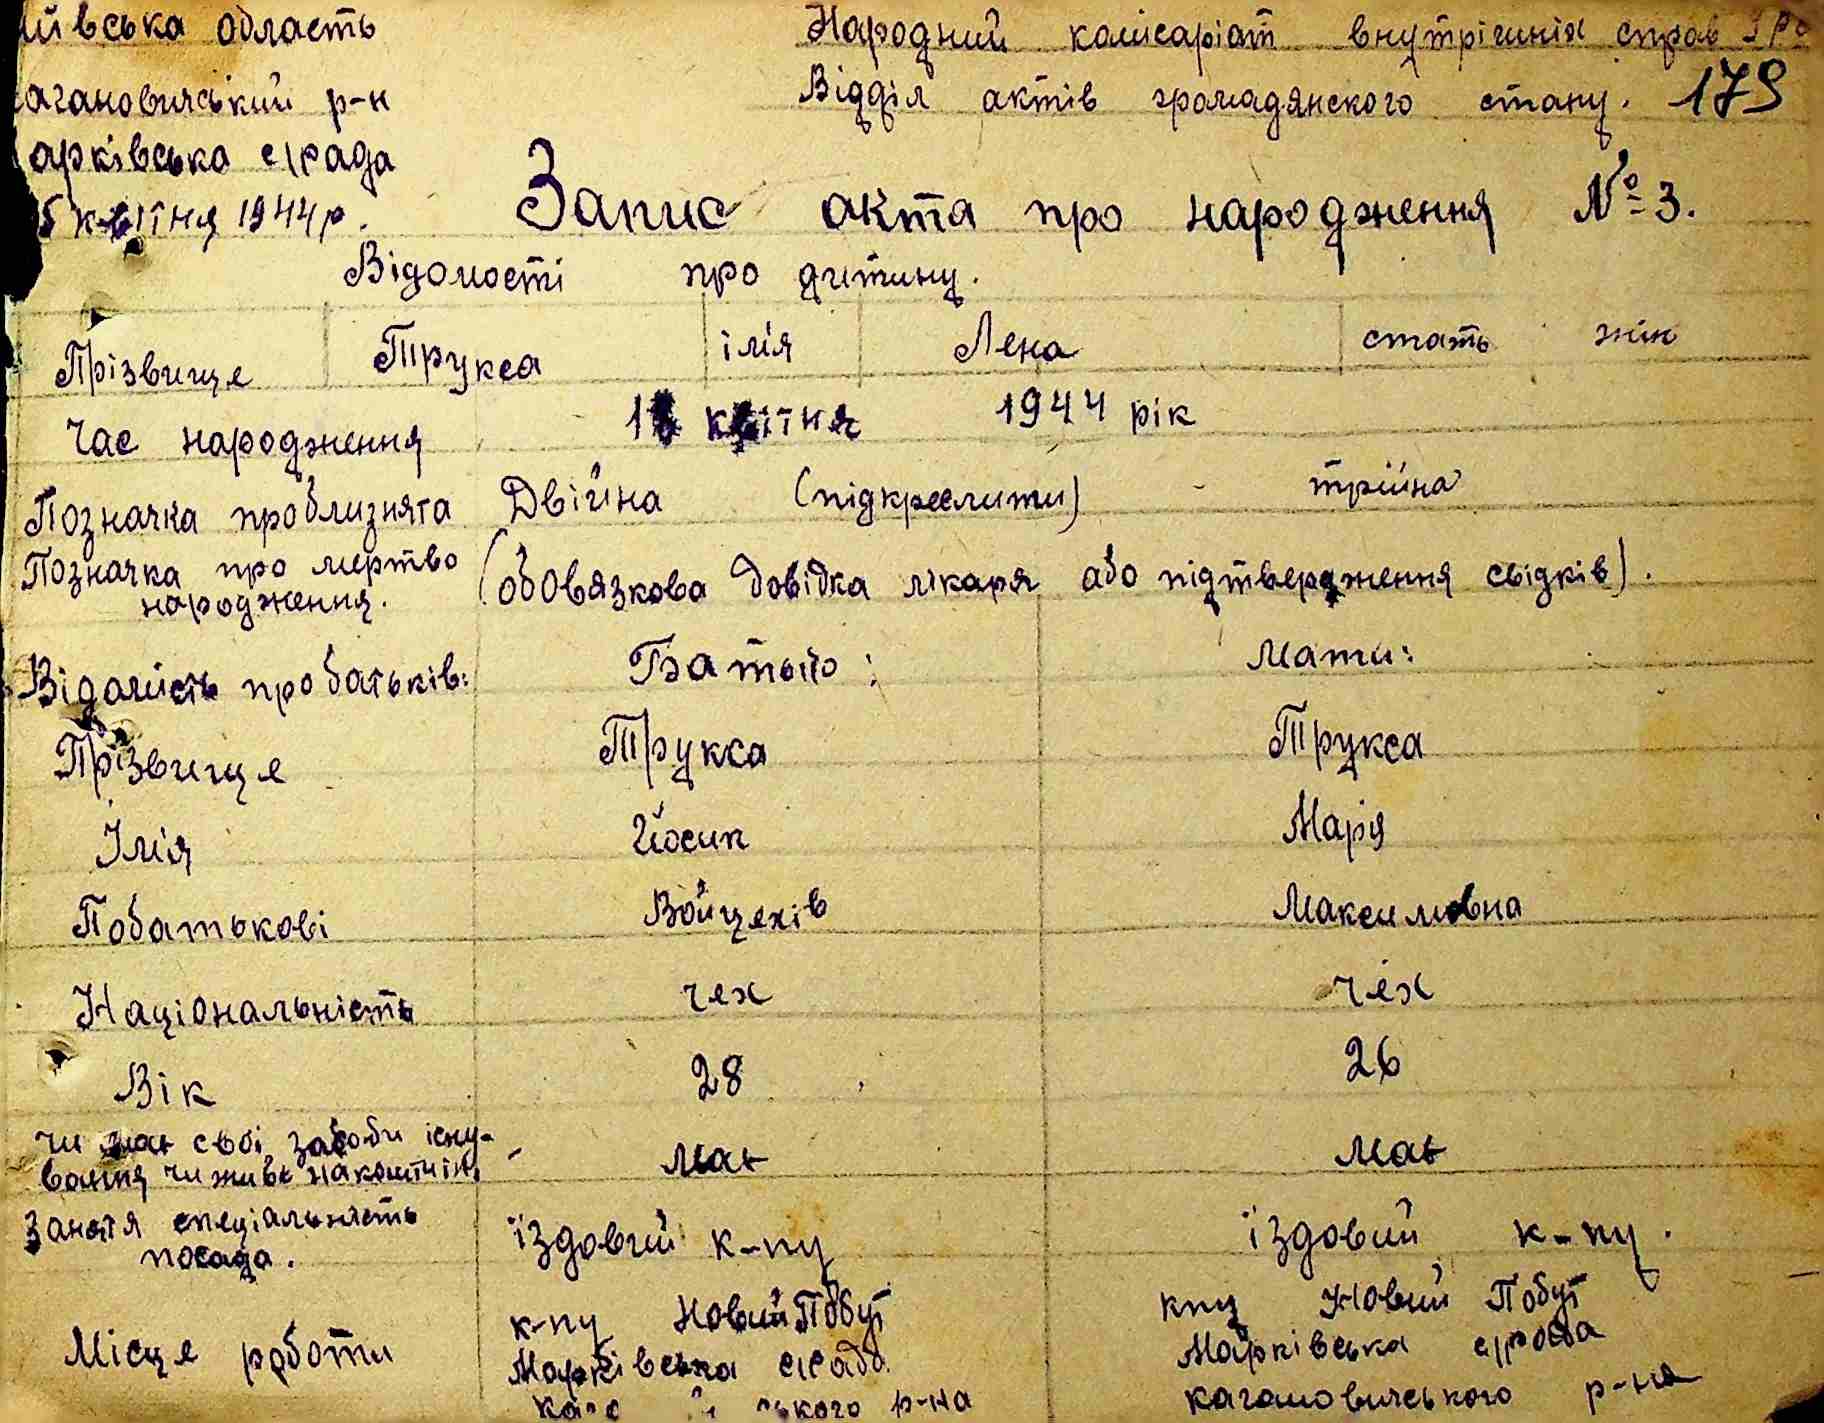 ївська область
Народний комісаріат внутрішніх справ
агановичський р-н
Відділ актів громадянского стану. 179
арківська с/рада
5 квітня 1944 р.
Запис акта про народження № 3.
Відомості про дитину.
Прізвище Трукса імя Лена стать жін
Час народження квітня 1944 рік
Позначка проблизнята Двійна (підкреслити) - трійна
Позначка про мертво народження. (обовязкова довідка лікаря або підтвердження свідків).
Відомість про батьків: Батько: Мати:
Прізвище Трукса Трукса
Імя Йосип Марія
Побатькові Войцехів Максимовна
Національність чех чех
Вік 28 26
чи має свої засоби існу-
вання чи живе на має має
Заняття спеціальність
посада. їздовий к-пу їздовий к-пу.
Місце роботи
к-пу Новий Побут кпу Новий Побут
Марківська с/рада Марківська с/рада
р-на кагановичського р-на